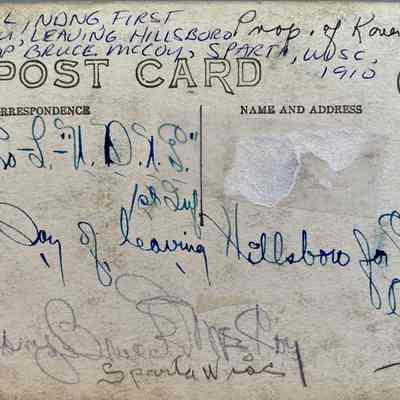 L, NDNG, FIRST
LEAVING HILLSBORO Prop. of
BRUCE MCCOY, SPARTA, WISC,
1910
POST CARD
RRESPONDENCE NAME AND ADDRESS
Co-L-"N.D.N.G."
1st Inf
Day of leaving Hillsboro for
Bruce McCoy
Sparta Wisc